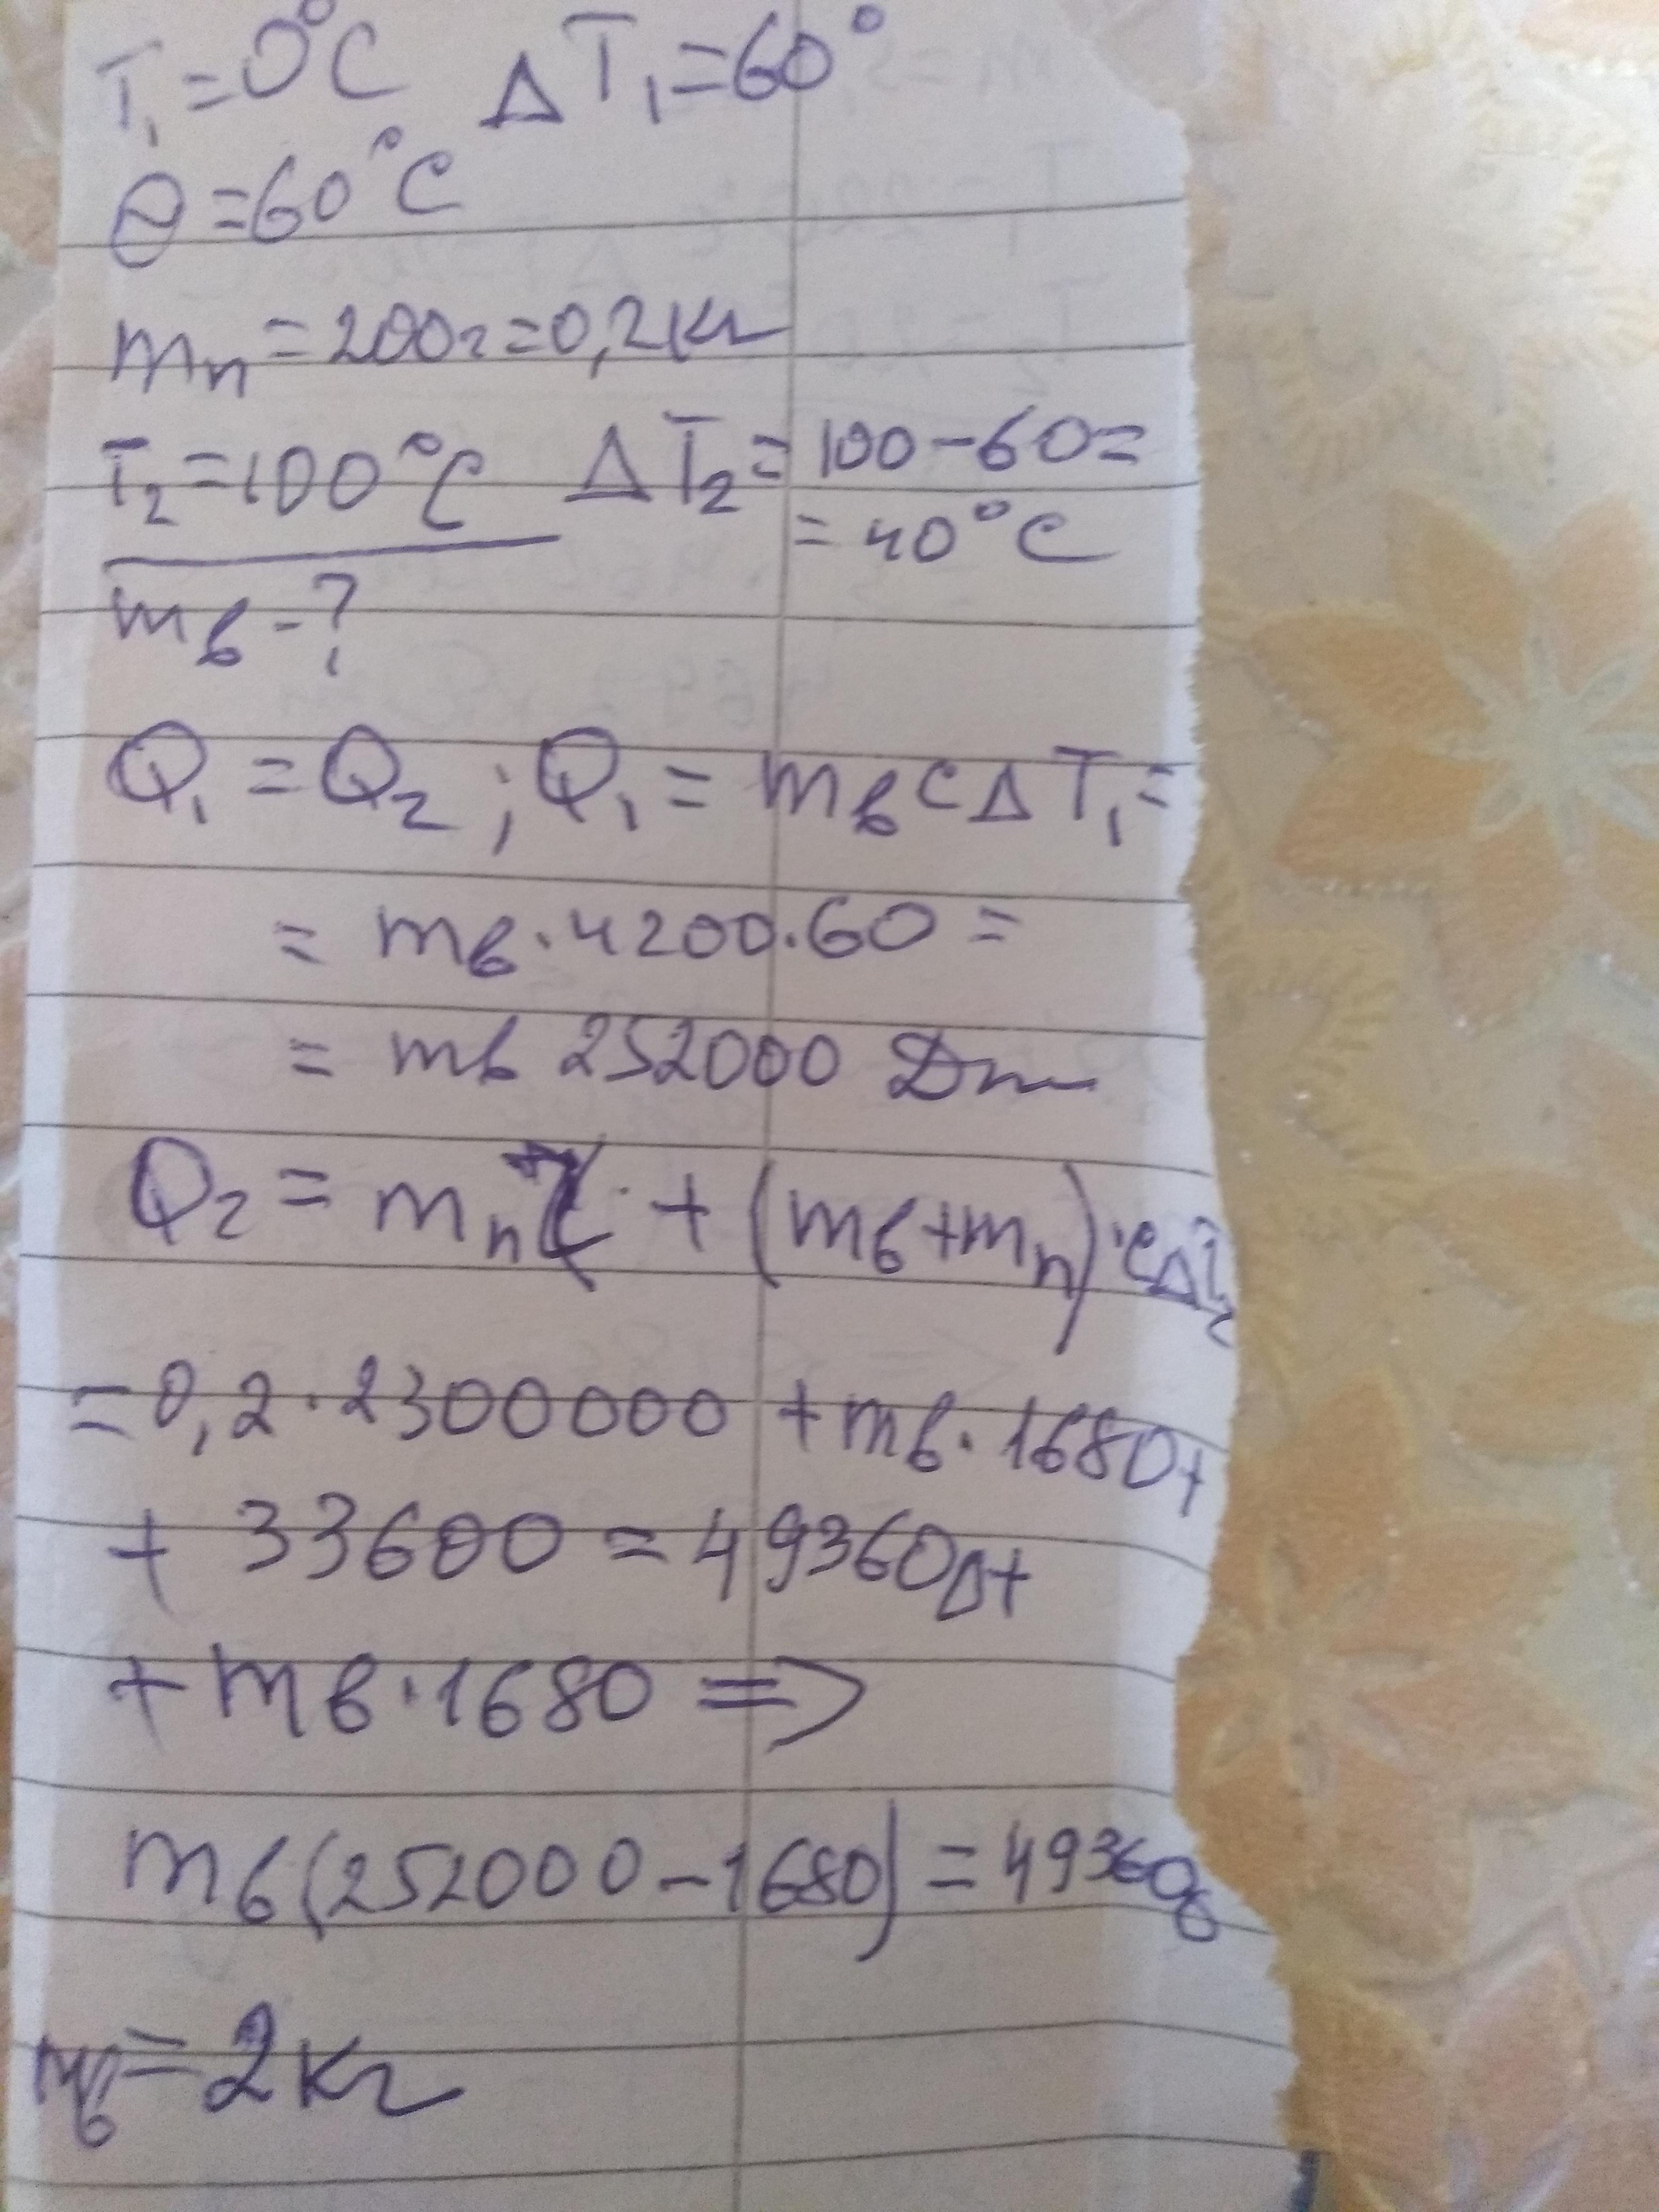 T₁=0°C ΔT₁=60°
Θ=60°C
mп=200г=0,2кг
T₂=100°C ΔT₂=100-60=
=40°C
mв-?
Q₁=Q₂; Q₁=mвcΔT₁=
=mв·4200·60=
=mв 252000 Дж
Q₂=mп + (mв+mп)·cΔT₂
=0,2·2300000+mв·1680+
+33600=493600+
+mв·1680=>
mв(252000-1680)=493600
mв=2кг